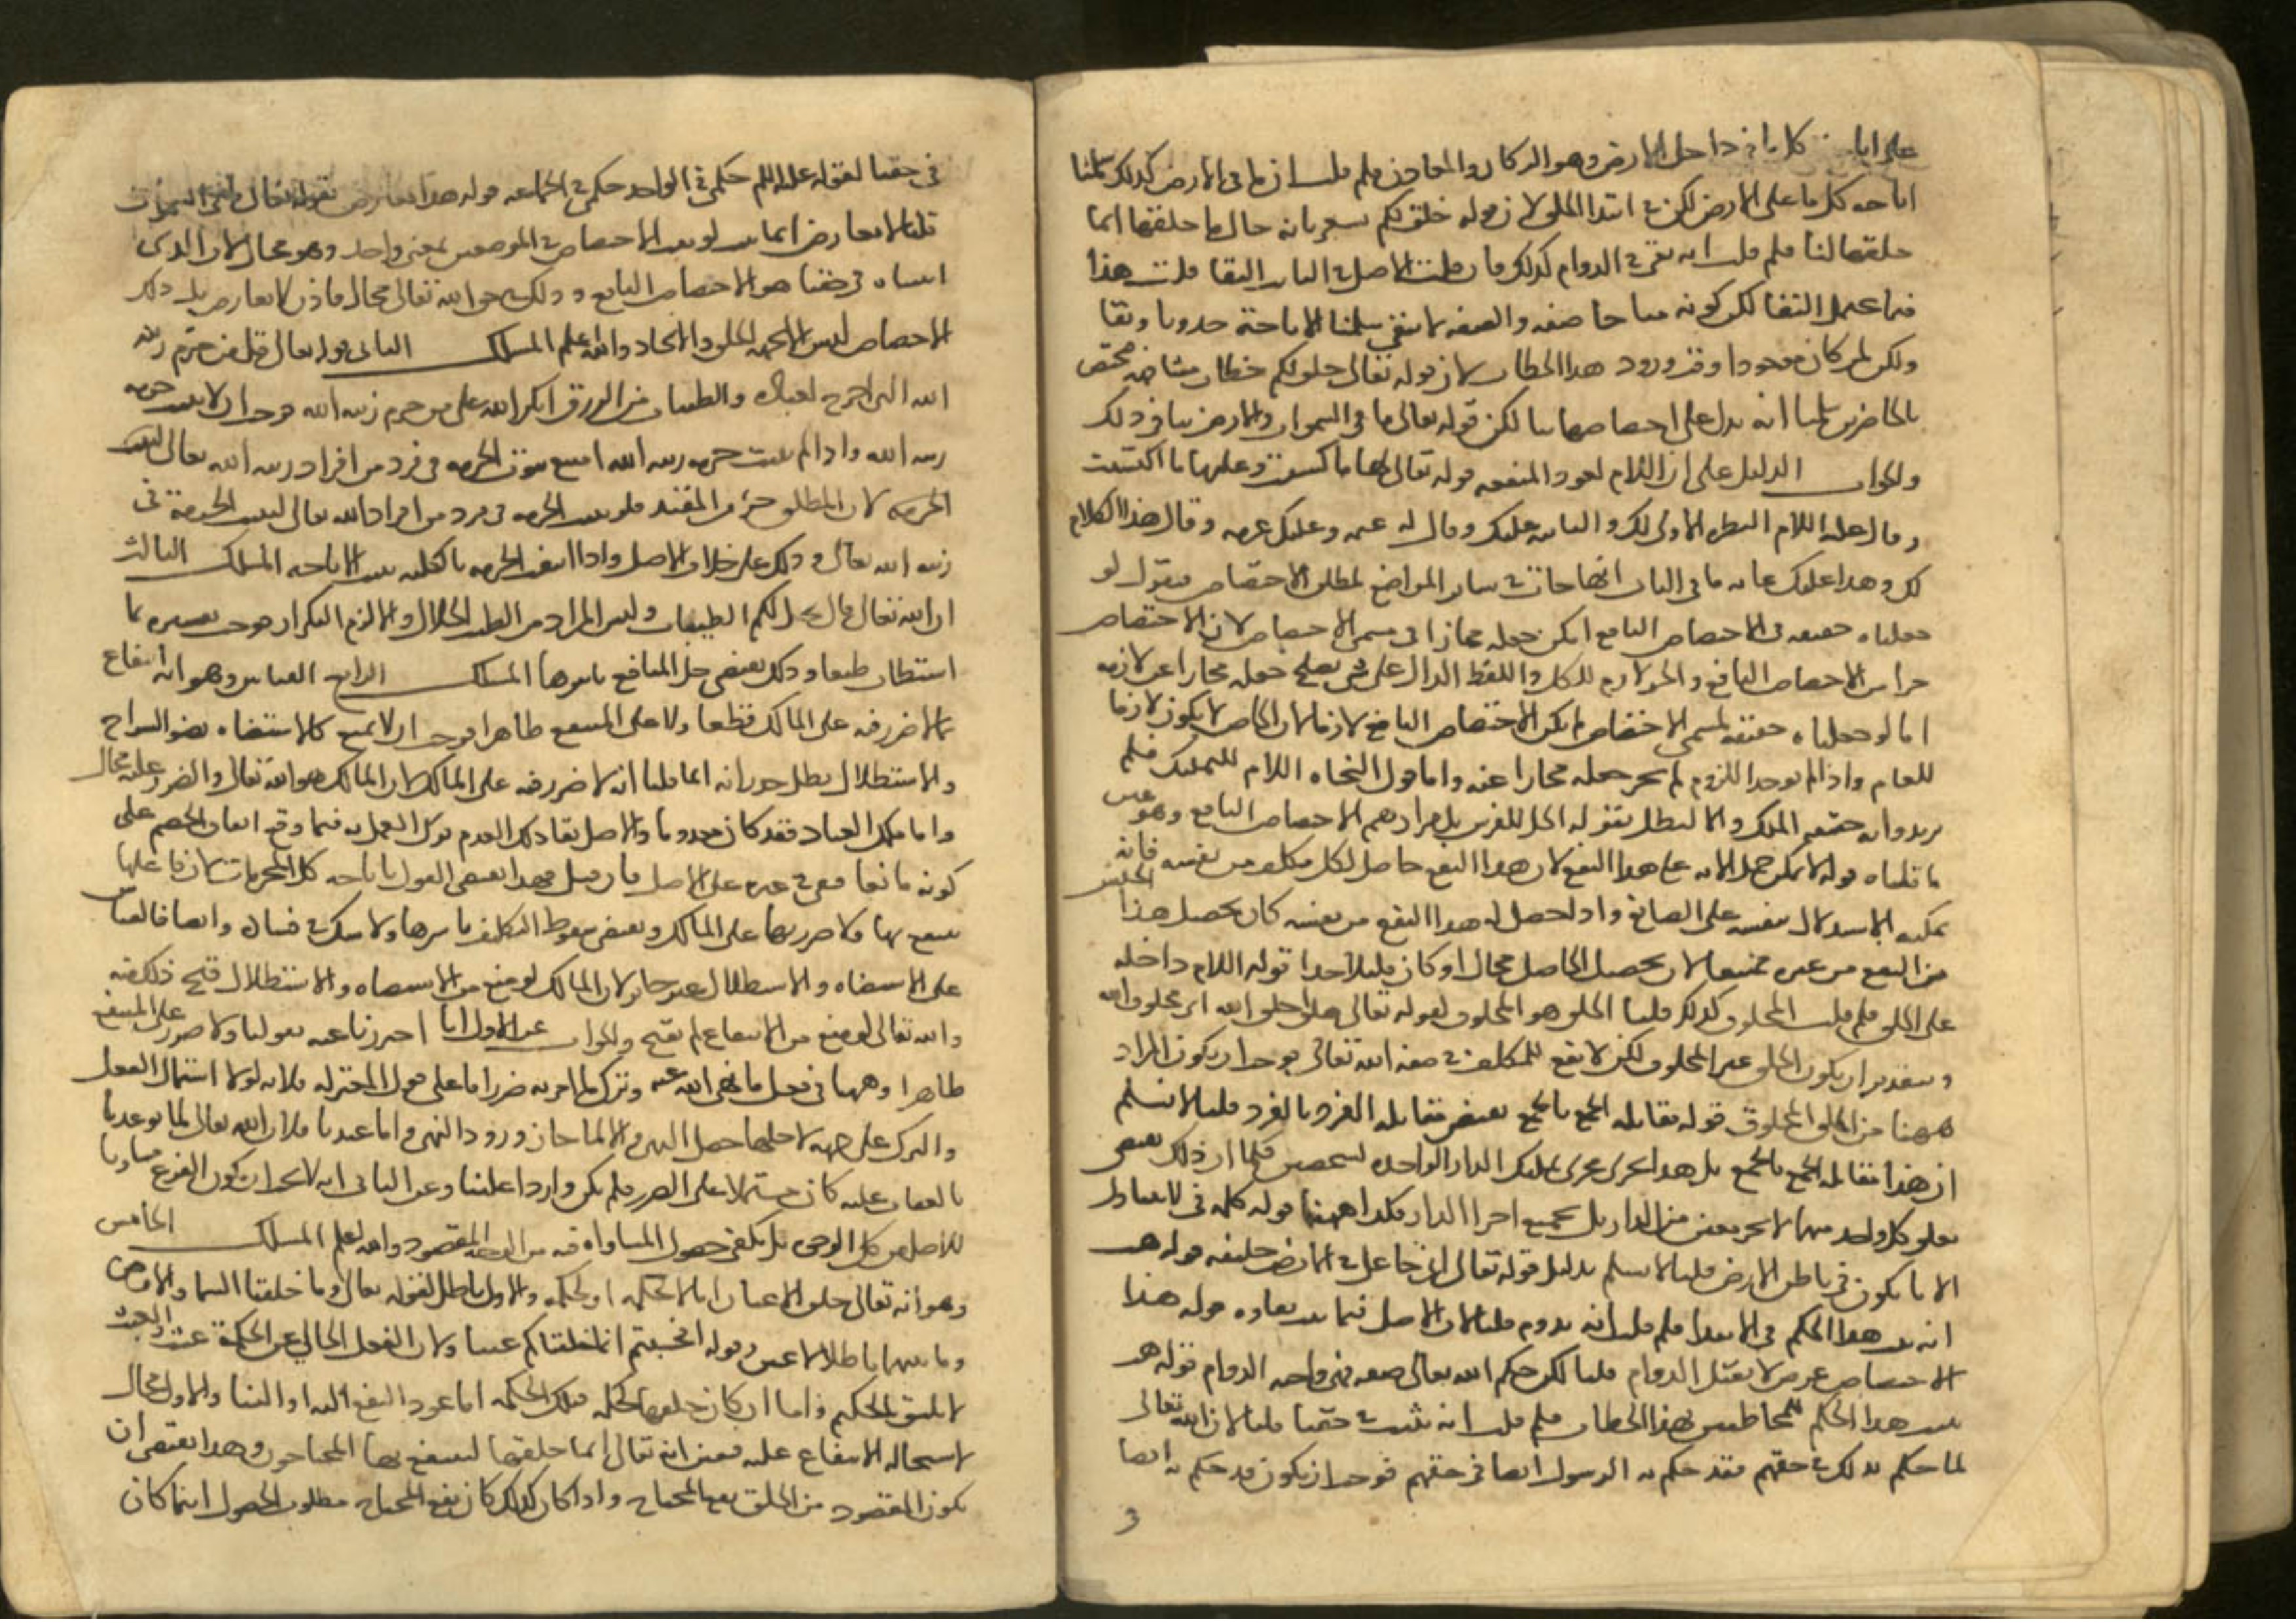 على اباحة كل ما في داخل الارض وهو الركاز والمعادن فلم قلت ان ما في الارض كذلك سلمنا
اباحه كل ما على الارض لكن في ابتدا الخلق لان قوله خلق لكم يشعر بانه حال ما خلقها انما
خلقها لنا فلم قلت انه بقي في الدوام كذلك فان قلت الاصل في الثابت البقا قلت هذا
فيما يحتمل البقا لكن كونه مباحا صفه والصفه لا تبقى سلمنا الاباحة حدوثا وبقا
ولكن لمن كان موجودا وقت ورود هذا الخطاب لان قوله تعالى خلق لكم خطاب مشافهه مختص
بالحاضرين سلمنا انه يدل على اختصاصها بنا لكن قوله تعالى ما في السموات والارض ينافي ذلك
والجواب الدليل على ان اللام لعود المنفعه قوله تعالى لها ما كسبت وعليها ما اكتسبت
وقال عليه السلام النظره الاولى لك والثانيه عليك ويقال له غنمه وعليك غرمه ويقال هذا الكلام
لك وهذا عليك غايه ما في الباب انها جات في ساير المواضع لمطلق الاختصاص فنقول لو
جعلناه حقيقه في الاختصاص النافع امكن جعله مجازا في مسمى الاختصاص لان الاختصاص
جزا من الاختصاص النافع والجز لازم للكل واللفظ الدال على شي يصلح جعله مجازا عن لازمه
اما لو جعلناه حقيقه لمسمى الاختصاص لم يكن الاختصاص النافع لازما لان الخاص لا يكون لازما
للعام واذا لم يوجد اللزوم لم يجز جعله مجازا عنه واما قول النحاه اللام للتمليك فلم
يريدوا به حقيقه الملك والا لبطل بقوله الجل للفرس بل مرادهم الاختصاص النافع وهو عين
ما قلناه قوله لا يمكن حمل الايه على هذا النفع لان هذا النفع حاصل لكل مكلف من نفسه فانه
يمكنه الاستدلال بنفسه على الصانع واذا حصل له هذا النفع من نفسه كان تحصيل هذا الجنس
من النفع من غيره ممتنعا لان تحصيل الحاصل محال او كان قليلا جدا قوله اللام داخله
على الخلق فلم قلت المخلوق كذلك قلنا الخلق هو المخلوق لقوله تعالى هذا خلق الله اي مخلوق الله
وبتقدير ان يكون الخلق غير المخلوق لكن لا نفع للمكلف في صفه الله تعالى فوجب ان يكون المراد
ههنا من الخلق المخلوق قوله مقابله الجمع بالجمع تقتضي مقابله الفرد بالفرد قلنا لا نسلم
ان هذا مقابله الجمع بالجمع بل هذا يجري مجرى تمليك الدار الواحده لشخصين فلما ان ذلك يقتضي
تعلق كل واحد منهما لا بجز معين من الدار بل بجميع اجزا الدار فكذا ههنا قوله كلمه في لا يتناول
الا ما يكون في باطن الارض قلنا لا نسلم بدليل قوله تعالى اني جاعل في الارض خليفه قوله هب
انه ثبت هذا الحكم في الابتدا فلم قلت انه يدوم قلنا لان الاصل فيما ثبت بقاوه قوله هذا
الاختصاص عرض لا يقبل الدوام قلنا لكن حكم الله تعالى صفه فهي واجبه الدوام قوله هب
ثبت هذا الحكم للمخاطبين بهذا الخطاب فلم قلت انه يثبت في حقنا قلنا لان الله تعالى
لما حكم بذلك في حقهم فقد حكم به الرسول ايضا في حقهم فوجب ان يكون قد حكم به ايضا
3
في حقنا لقوله عليه السلم حكمي في الواحد حكمي في الجماعه قوله هذا يعارض بقوله تعالى ما في السموات
قلنا لا تعارض انما يثبت لو ثبت الاختصاص في الموضعين بمعنى واحد وهو محال لان الذي
اثبتناه في حقنا هو الاختصاص النافع وذلك في حق الله تعالى محال فاذن لا تعارض بل ذلك
الاختصاص ليس الا بجهه الخلق والايجاد والله اعلم المسلك الثاني قوله تعالى قل من حرم زينه
الله التي اخرج لعباده والطيبات من الرزق انكر الله على من حرم زينه الله فوجب ان لا يثبت حرمه
زينه الله واذا لم يثبت حرمه زينه الله امتنع ثبوت الحرمه في فرد من افراد زينه الله تعالى ليثبت
الحرمه لان المطلق جز من المقيد فلو ثبت الحرمه في فرد من افراد الله تعالى لثبتت الحرمة في
زينه الله تعالى وذلك على خلاف الاصل واذا انتفت الحرمه بالكليه ثبت الاباحه المسلك الثالث
ان الله تعالى قال احل لكم الطيبات وليس المراد من الطيب الحلال والا لزم التكرار فوجب تفسيره بما
استطاب طبعا وذلك يقتضي حل المنافع باسرها المسلك الرابع القياس وهو انه انتفاع
بما لا ضرر فيه على المالك قطعا ولا على المنتفع ظاهرا فوجب ان لا يمنع كالاستضاه بضو السراج
والاستظلال بظل جداره انما قلنا انه لا ضرر فيه على المالك لان المالك هو الله تعالى والضرر عليه محال
واما ملك العباد فقد كان معدوما والاصل بقا ذلك العدم ترك العمل به فيما وقع اتفاق الخصم على
كونه مانعا فبقي في غيره على الاصل فان قيل فهذا يقتضي القول باباحه كل المحرمات لان فاعلها
ينتفع بها ولا ضرر فيها على المالك ويقتضي سقوط التكليف باسرها ولا شك في فساده وايضا فالقياس
على الاستضاه والاستظلال غير جايز لان المالك لو منع من الاستضاه والاستظلال قبح ذلك منه
والله تعالى لو منع من الانتفاع لم يقبح والجواب عن الاول انا احترزنا عنه بقولنا ولا ضرر على المنتفع
ظاهرا وههنا في فعل ما نهى الله عنه وترك ما امر به ضررا ما على قول المعتزله فلانه لولا اشتمال الفعل
والترك على جهه لاجلها حصل النهي والا لما جاز ورود النهي واما عندنا فلان الله تعالى لما توعدنا
بالعقاب عليه كان مشتملا على الضرر فلم يكن واردا علينا وعن الثاني انه لا يجب ان يكون الفرع مساويا
للاصل من كل الوجوه بل يكفي حصول المساواه فيه من الوجه المقصود والله اعلم المسلك الخامس
وهو انه تعالى خلق الاعيان اما لا لحكمه او لحكمه والاول باطل لقوله تعالى وما خلقنا السما والارض
وما بينهما باطلا لاعبين وقوله افحسبتم انما خلقناكم عبثا ولان الفعل الخالي عن الحكمة عبث والعبث
لا يليق بالحكيم واما ان كان خلقها لحكمه فتلك الحكمه اما عود النفع اليه او الينا والاول محال
لاستحاله الانتفاع عليه فتعين انه تعالى انما خلقها لينتفع بها المحتاجون وهذا يقتضي ان
يكون المقصود من الخلق نفع المحتاج واذا كان كذلك كان نفع المحتاج مطلوب الحصول اينما كان